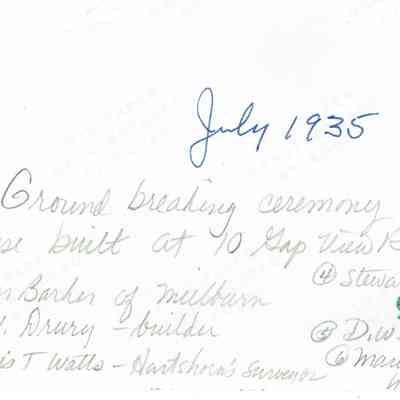 July 1935
Ground breaking ceremony
built at 10 Gap View
Barker of Millburn
Drury - builder
T Watts - Hartshorn's Surveyor
④ Stewa
⑤ D.W.
⑥